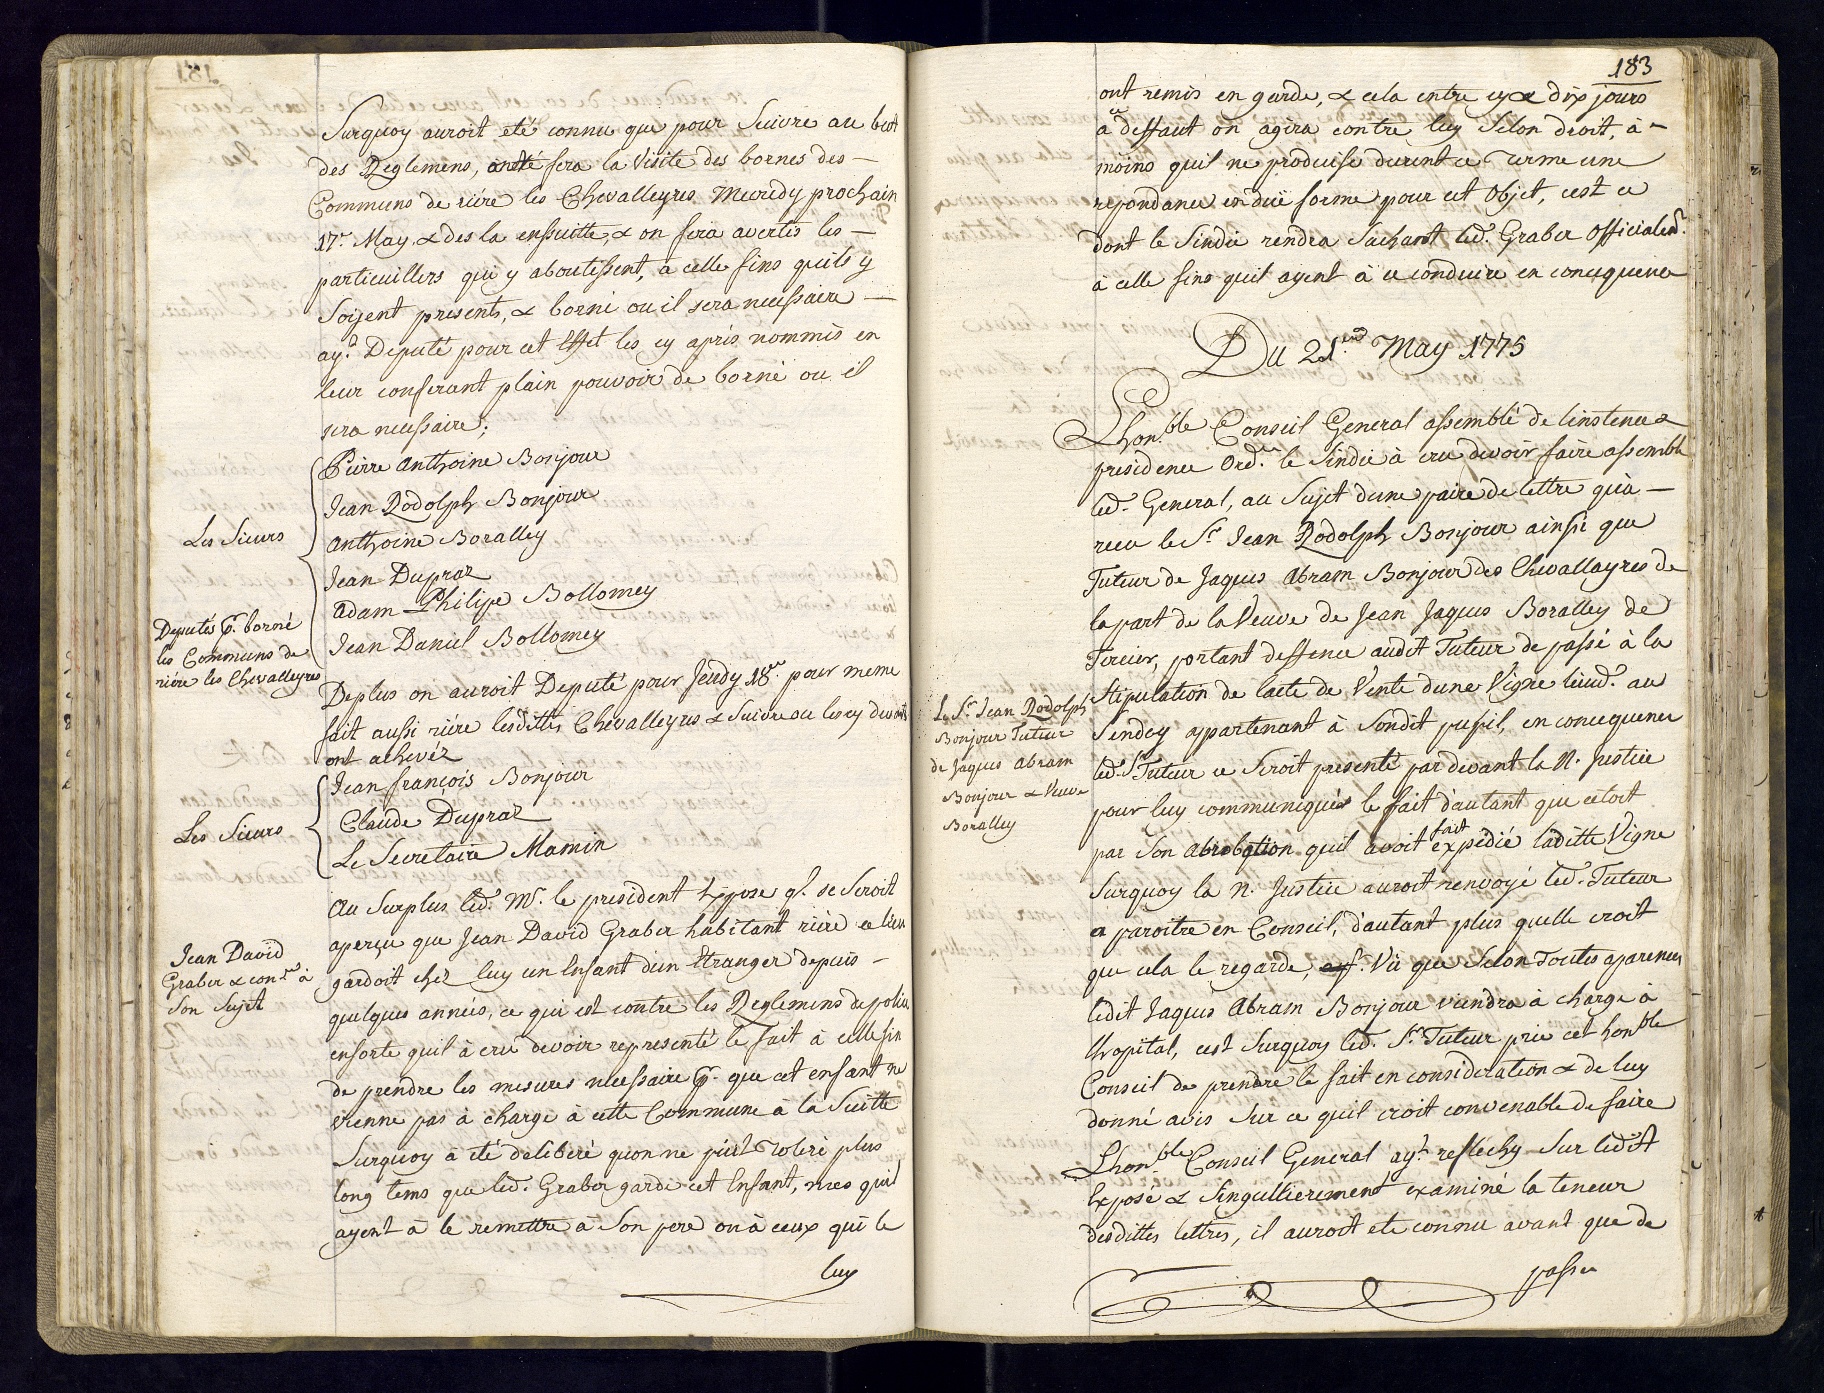 Surquoy auroit eté connu que pour Suivre au but
des Reglemens, on fera la Visite des bornes des
Communs de riére les Chevalleyres Mecredy prochain
17.e May & des la ensuitte, & on fera avertir les
particuillers qui y aboutissent, à celle fins quils y
Soiyent presents, & borné ou il sera necessaire
ay.t Deputé pour cet Effet les cy aprés nommés en
leur conferant plain pouvoir de borné ou il
sera necessaire;
Les Sieurs
Pierre Anthoine Bonjour
Jean Rodolph Bonjour
Anthoine Boralley
Jean Dupraz
Adam Philipe Bollomey
Jean Daniel Bollomey
Deputés p.r borné
les Communs de
riére les Chevalleyres
Deplus on auroit Deputé pour Jeudy 18.e pour meme
fait aussi riére lesdittes Chevalleyres & Suivre ou les cy devants
ont achevéz
Les Sieurs
Jean françois Bonjour
Claude Dupraz
Le Secretaire Mamin
Au Surplus led. Mr. le president Expose q'l se Seroit
aperçu que Jean David Graber habitant riére ce lieu
Jean David
Graber & con.r à
Son Sujet
gardoit chez luy un Enfant d'un Etranger depuis
quelques années, ce qui est contre les Reglemens de police
ensorte quil à cru devoir representé le fait à celle fin
de prendre les mesures necessaire p.r que cet enfant ne
vienne pas à charge à cette Commune à la Suitte
Surquoy à eté deliberé quon ne peut toleré plus
long tems que led. Graber garde cet Enfant, mes quil
ayent à le remettre à Son pere ou à ceux qui le
luy
183
ont remis en garde, & cela entre cy & dix jours
à ce deffaut on agira contre luy Selon droit, à
moins quil ne produise durent ce terme une
repondance en duë forme pour cet Objet, cest ce
dont le Sindic rendra Sachant led. Graber Officialem.t
à celle fins quil ayent à ce conduire en concequence
Du 21.eme May 1775
Lhon.ble Conseil General assemblé de linstence &
presidence Ord.re le Sindic à cru devoir faire assemblé
led. General, au Sujet dune paire de lettre quà
recu le S.r Jean Rodolph Bonjour ainsi que
Tuteur de Jaques Abram Bonjour des Chevallayres de
la part de la Veuve de Jean Jaques Boralley de
Tercier, portant deffence audit Tuteur de passé à la
Le S.r Jean Rodolph
Bonjour Tuteur
de Jaques Abram
Bonjour & Veuve
Boralley
Stipulation de lacte de Vente dune Vigne lieud. au
Sendey appartenant à Sondit pupil, en concequence
led. S.r Tuteur ce Seroit presenté par devant la N. Justice
pour luy communiquér le fait d'autant que cetoit
par Son Abrobation quil avoit fait expédié laditte Vigne
Surquoy la N. Justice auroit renvoyé led. Tuteur
a paroitre en Conseil, d'autant plus quelle croit
que cela le regarde, Vû que Selon Toutes aparences
ledit Jaques Abram Bonjour viendra à charge à
Lhopital, cest Surquoy led. S.r Tuteur prie cet hon.ble
Conseil de prendre le fait en consideration & de luy
donné avis Sur ce quil croit convenable de faire
Lhon.ble Conseil General ay.t reflechy Sur ledit
Exposé & Singullierement examiné la teneur
desdittes lettres, il auroit eté connu avant que de
passer